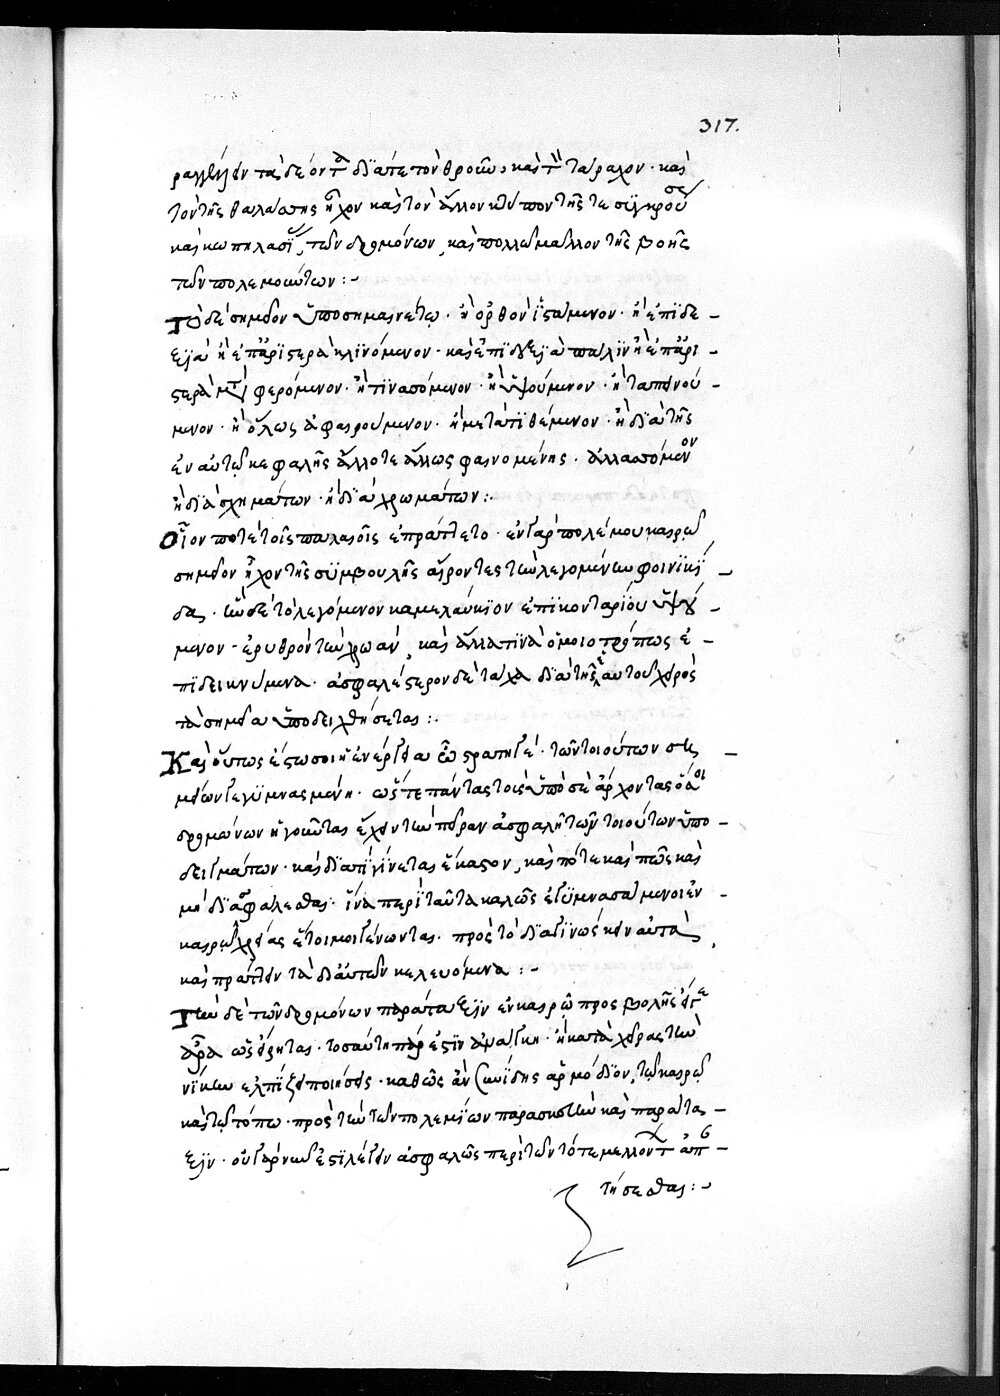 317.
ραγγέλλειν τὰ δέοντα διά τε τὸν θροῦν καὶ τὴν ταραχὴν· καὶ
τὸν τῆς θαλάσσης ἦχον καὶ τὸν ἄλλον κτύπον τῆς τε συγκρούσε
καὶ κωπηλασί, τῶν δρομόνων, καὶ πολλῶ μᾶλλον τῆς βοῆς
τῶν πολεμούντων :-
Τὸ δὲ σημεῖον ὑποσημαινέτω· ἢ ὀρθὸν ἱστάμενον· ἢ ἐπὶ δε -
ξιὰ ἢ ἐπ' ἀριστερὰ κλινόμενον· καὶ ἐπὶ δεξιὰ πάλιν ἢ ἐπ' ἀρι -
στερὰ μεταφερόμενον· ἢ τινασσόμενον· ἢ ὑψούμενον· ἢ ταπεινού -
μενον· ἢ ὅλως ἀφαιρούμενον· ἢ μετατιθέμενον· ἢ διὰ τῆς
ἐν αὐτῶ κεφαλῆς ἄλλοτε ἄλλως φαινομένης· ἀλλασσόμενον
ἢ διὰ σχημάτων· ἢ διὰ χρωμάτων :-
Οἷον ποτὲ τοῖς παλαιοῖς ἐπράττετο· ἐν γὰρ πολέμου καιρῶ
σημεῖον εἶχον τῆς συμβουλῆς αἴροντες τὴν λεγομένην φοινικί -
δα· ἦν δὲ τὸ λεγόμενον καμελαύκιον ἐπὶ κονταρίου ὑψού -
μενον· ἐρυθρὸν τὴν χροάν, καὶ ἄλλα τινὰ ὁμοιοτρόπως ἐ -
πιδεικνύμενα· ἀσφαλέστερον δὲ τάχα διὰ τῆς ἑαυτοῦ χειρὸς
τὰ σημεῖα ὑποδειχθήσεται :.
Καὶ οὕτως ἔστω σοι ἡ ἐνέργεια ὦ στρατηγέ· τῶν τοιούτων ση -
μείων γεγυμνασμένη· ὥστε πάντας τοὺς ὑπὸ σὲ ἄρχοντας ὅσοι
δρομώνων ἡγοῦνται ἔχειν τὴν πεῖραν ἀσφαλῆ τῶν τοιούτων ὑπο -
δειγμάτων· καὶ διατί γίνεται ἕκαστον, καὶ πότε καὶ πῶς καὶ
μὴ διασφάλλεσθαι· ἵνα περὶ ταῦτα καλῶς ἐγγυμνασάμενοι ἐν -
καιρῶ χρείας ἕτοιμοι γένωνται· πρὸς τὸ διαγινώσκειν αὐτὰ,
καὶ πράττειν τὰ δι' αὐτῶν κελευόμενα :-
Τὴν δὲ τῶν δρομόνων παράταξιν ἐν καιρῶ προσβολῆς εἴτε
ἄρα ὡς εἴρηται· τοσαύτη πάρεστιν ἀνάγκη· ἢ κατὰ χεῖρας τὴν
νίκην ἐλπίζει ποιήσεις· καθὼς ἂν συνίδης ἁρμόδιον, τῶ καιρῶ
καὶ τῶ τόπω· πρὸς τὴν τῶν πολεμίων παρασκευὴν καὶ παράτα -
ξιν· οὐ γὰρ νῦν ἔστι λέγειν ἀσφαλῶς περὶ τῶν τότε μελλόντων ἀπαν -
τήσεσθαι :-